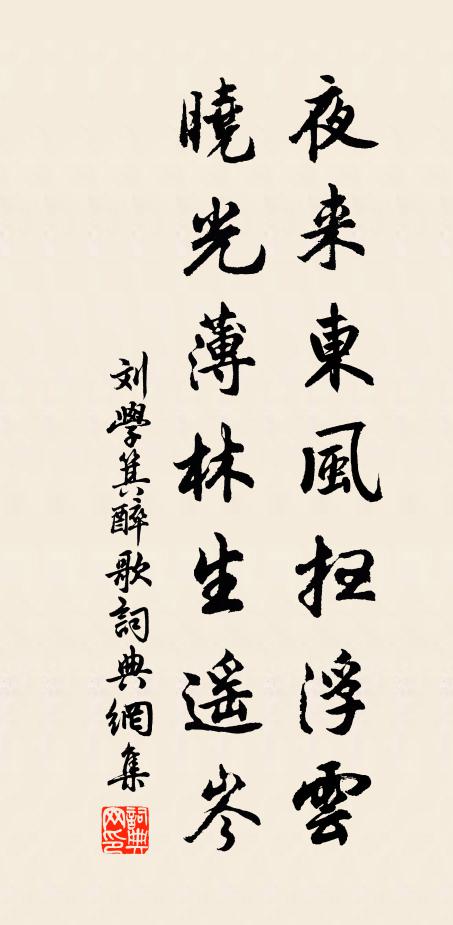 夜来東風扫浮雲
曉光薄林生遥岑
刘學箕醉歌詞典網集
詞典網印